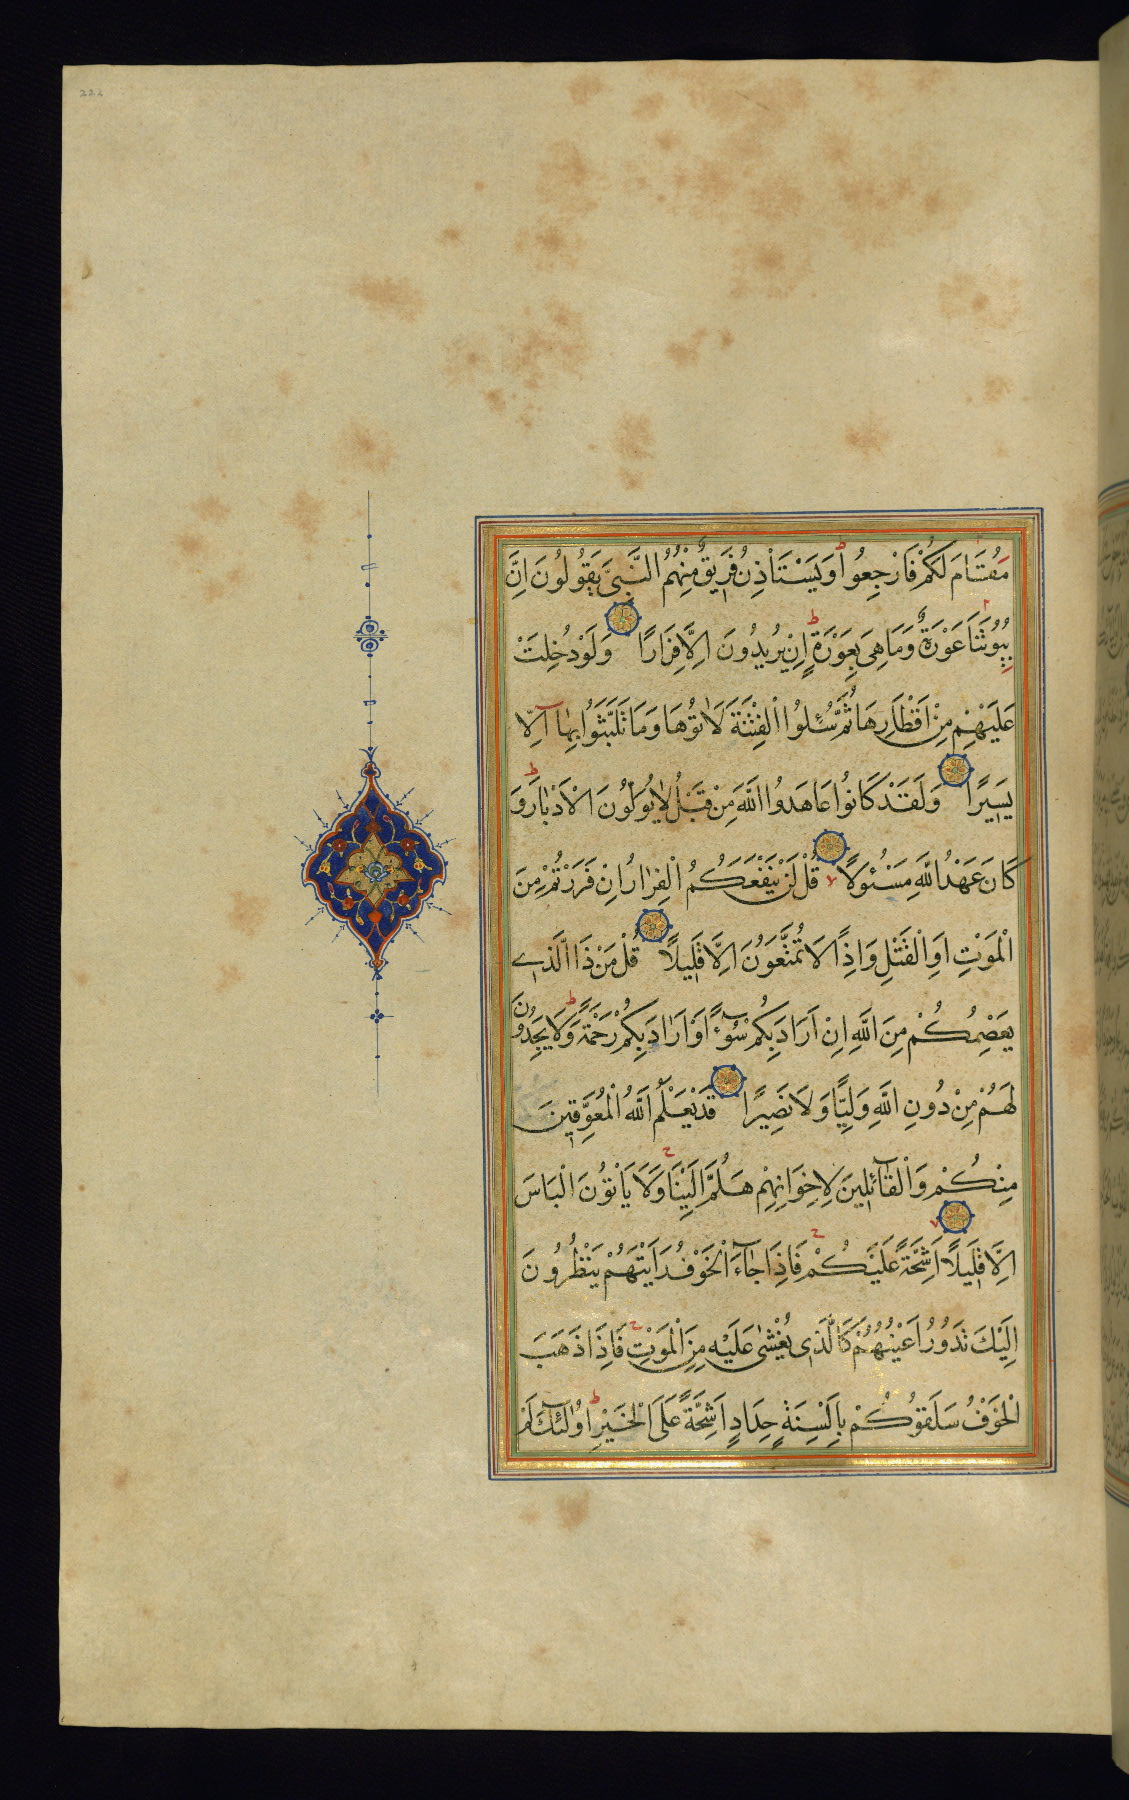 222
مَقُامَ لَكُمْ فَارْجِعُوا ط وَيَسْتَاْذِنُ فَرِيقٌ مِنْهُمُ النَّبِىَّ يَقُولُونَ اِنَّ
بُيُوتَنَا عَوْرَةٌ وَمَا هِىَ بِعَوْرَةٍ ط اِنْ يُرِيدُونَ اِلَّا فِرَارًا وَلَوْ دُخِلَتْ
عَلَيْهِمْ مِنْ اَقْطَارِهَا ثُمَّ سُئِلُوا الْفِتْنَةَ لَاٰتَوْهَا وَمَا تَلَبَّثُوا بِهَآ اِلَّا
يَسِيرًا وَلَقَدْ كَانُوا عَاهَدُوا اللّٰهَ مِنْ قَبْلُ لَا يُوَلُّونَ الْاَدْبَارَ ط وَ
كَانَ عَهْدُ اللّٰهِ مَسْئُولًا قُلْ لَنْ يَنْفَعَكُمُ الْفِرَارُ اِنْ فَرَرْتُمْ مِنَ
الْمَوْتِ اَوِ الْقَتْلِ وَاِذًا لَا تُمَتَّعُونَ اِلَّا قَلِيلًا قُلْ مَنْ ذَا الَّذِى
يَعْصِمُكُمْ مِنَ اللّٰهِ اِنْ اَرَادَ بِكُمْ سُوٓءًا اَوْ اَرَادَ بِكُمْ رَحْمَةً ط وَلَا يَجِدُونَ
لَهُمْ مِنْ دُونِ اللّٰهِ وَلِيًّا وَلَا نَصِيرًا قَدْ يَعْلَمُ اللّٰهُ الْمُعَوِّقِينَ
مِنْكُمْ وَالْقَآئِلِينَ لِاِخْوَانِهِمْ هَلُمَّ اِلَيْنَا ج وَلَا يَاْتُونَ الْبَاْسَ
اِلَّا قَلِيلًا اَشِحَّةً عَلَيْكُمْ ج فَاِذَا جَآءَ الْخَوْفُ رَاَيْتَهُمْ يَنْظُرُونَ
اِلَيْكَ تَدُورُ اَعْيُنُهُمْ كَالَّذِى يُغْشٰى عَلَيْهِ مِنَ الْمَوْتِ ج فَاِذَا ذَهَبَ
الْخَوْفُ سَلَقُوكُمْ بِاَلْسِنَةٍ حِدَادٍ اَشِحَّةً عَلَى الْخَيْرِ ط اُولٰٓئِكَ لَمْ